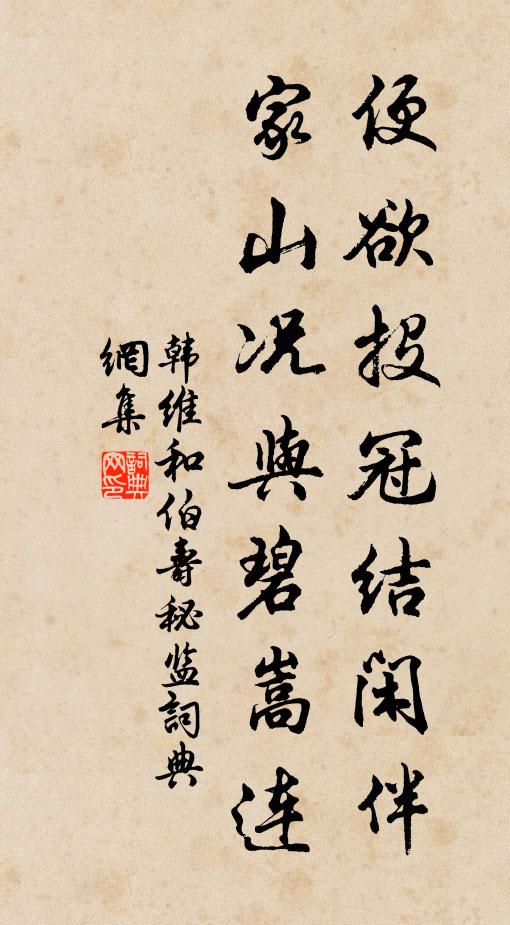 便欲投冠结闲伴
家山况與碧嵩連
韩维和伯壽秘监詞典
網集
詞典網印